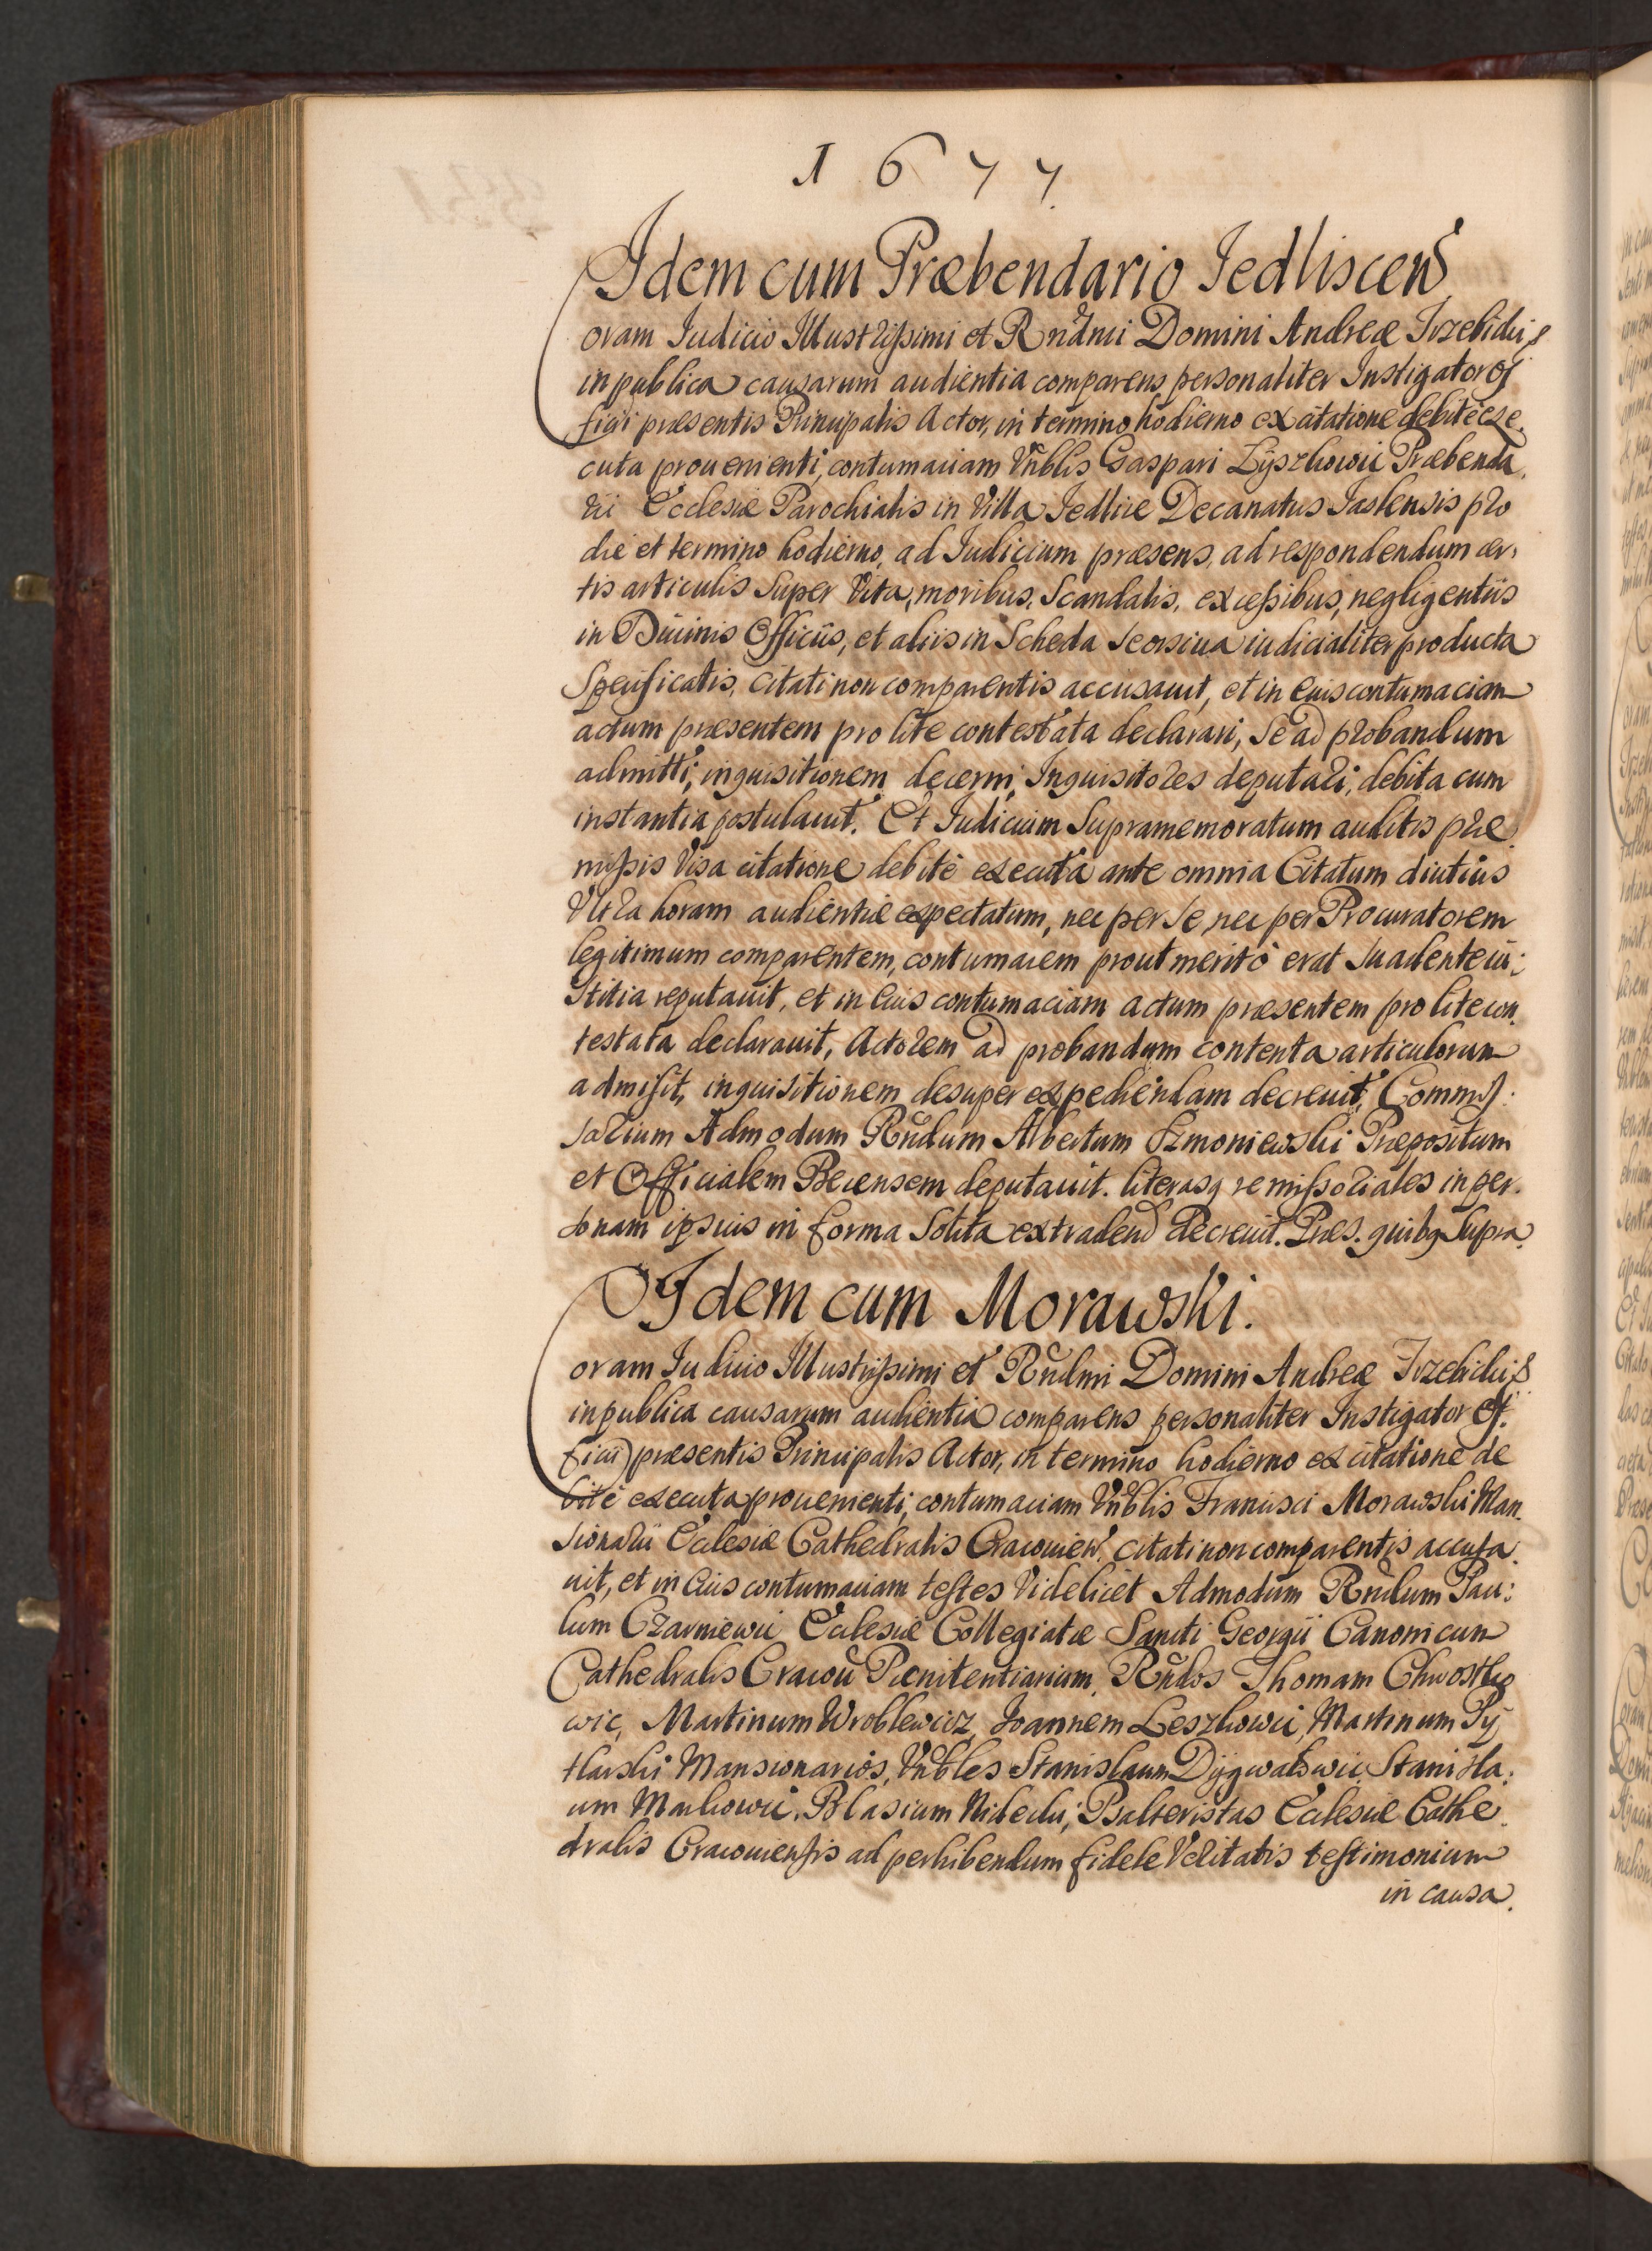 1677.
Idem cum Præbendario Iedliscens
Coram Iudicio Illustrissimi et Rndmi Domini Andreæ Trzebicki &
in publica causarum audientia comparens personaliter Instigator Of
ficii præsentis Principalis Actor, in termino hodierno ex citatione debitè exe.
cuta prouenienti, contumaciam Vnblis Gaspari Łyszkowic Præbenda
rii Ecclesiæ Parochialis in Villa Iedlice Decanatus Iaslensis pro
die et termino hodierno, ad Iudicium præsens, ad respondendum cer,
tis articulis super Vita, moribus, Scandalis, excessibus, negligentiis
in Diuinis Officiis, et aliis in Scheda seorsiua iudicialiter producta
Specificatis, citati non comparentis accusauit, et in eius contumaciam
actum præsentem pro lite contestata declarari, se ad probandum
admitti, inquisitionem decerni, Inquisitores deputari, debita cum
instantia postulauit. Et Iudicium Supramemoratum auditis præ
missis Visa citatione debitè executa ante omnia Citatum diutius
Vltra horam audientiæ expectatum, nec per se, nec per Procuratorem
legitimum comparentem, contumacem prout meritò erat suadente iu:
stitia reputauit, et in eius contumaciam actum præsentem pro lite con,
testata declarauit, Actorem ad probandum contenta articulorum
admisit, inquisitionem desuper expediendam decreuit, Commis:
sarium Admodum Rndum Albertum Szmoniewski Præpositum
et Officialem Becensem deputauit. literasq remissoriales in per.
sonam ipsius in forma solita extradend decreuit. Præs. quibq Supra.
Idem cum Morawski.
Coram Iudicio Illustrissimi et Rndmi Domini Andreæ Trzebicki &
in publica causarum audientia comparens personaliter Instigator Of.
ficii præsentis Principalis Actor, in termino hodierno ex citatione de
bitè executa prouenienti, contumaciam Vnblis Francisci Morawski Man.
sionarii Ecclesiæ Cathedralis Cracouien. citati non comparentis accusa.
uit, et in eius contumaciam testes Videlicet Admodum Rndum Pau:
lum Czarniewic Ecclesiæ Collegiatæ Sancti Georgii Canonicum
Cathedralis Cracou Pœnitentiarium, Rndos Thomam Chwostko
wic, Martinum Wroblewicz, Ioannem Leszkowic, Martinum Py
tlarski Mansionarios, Vnbles Stanislaum Dygwatowic, Stanisla:
um Markowic, Blasium Nidecki, Psalteristas Ecclesiæ Cathe.
dralis Cracouiensis ad perhibendum fidele Veritatis testimonium
in causa.